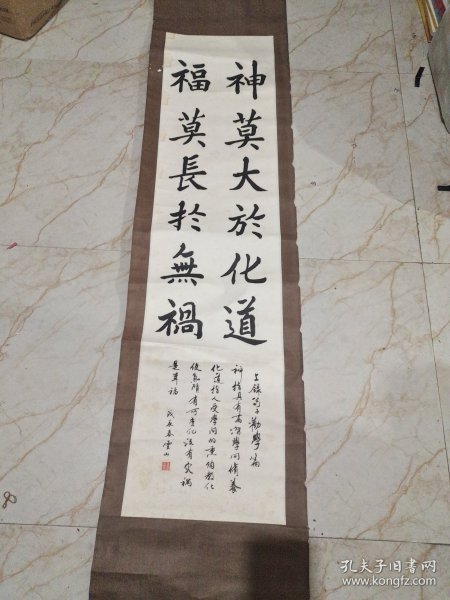 神莫大於化道
福莫長於無禍
上錄荀子勸學篇
神指具有高深學問修養
化道指人受學問的熏陶教化
使氣質有所变化没有灾禍
是莫福 戊辰春雲山
孔夫子旧書网
www.kongfz.com